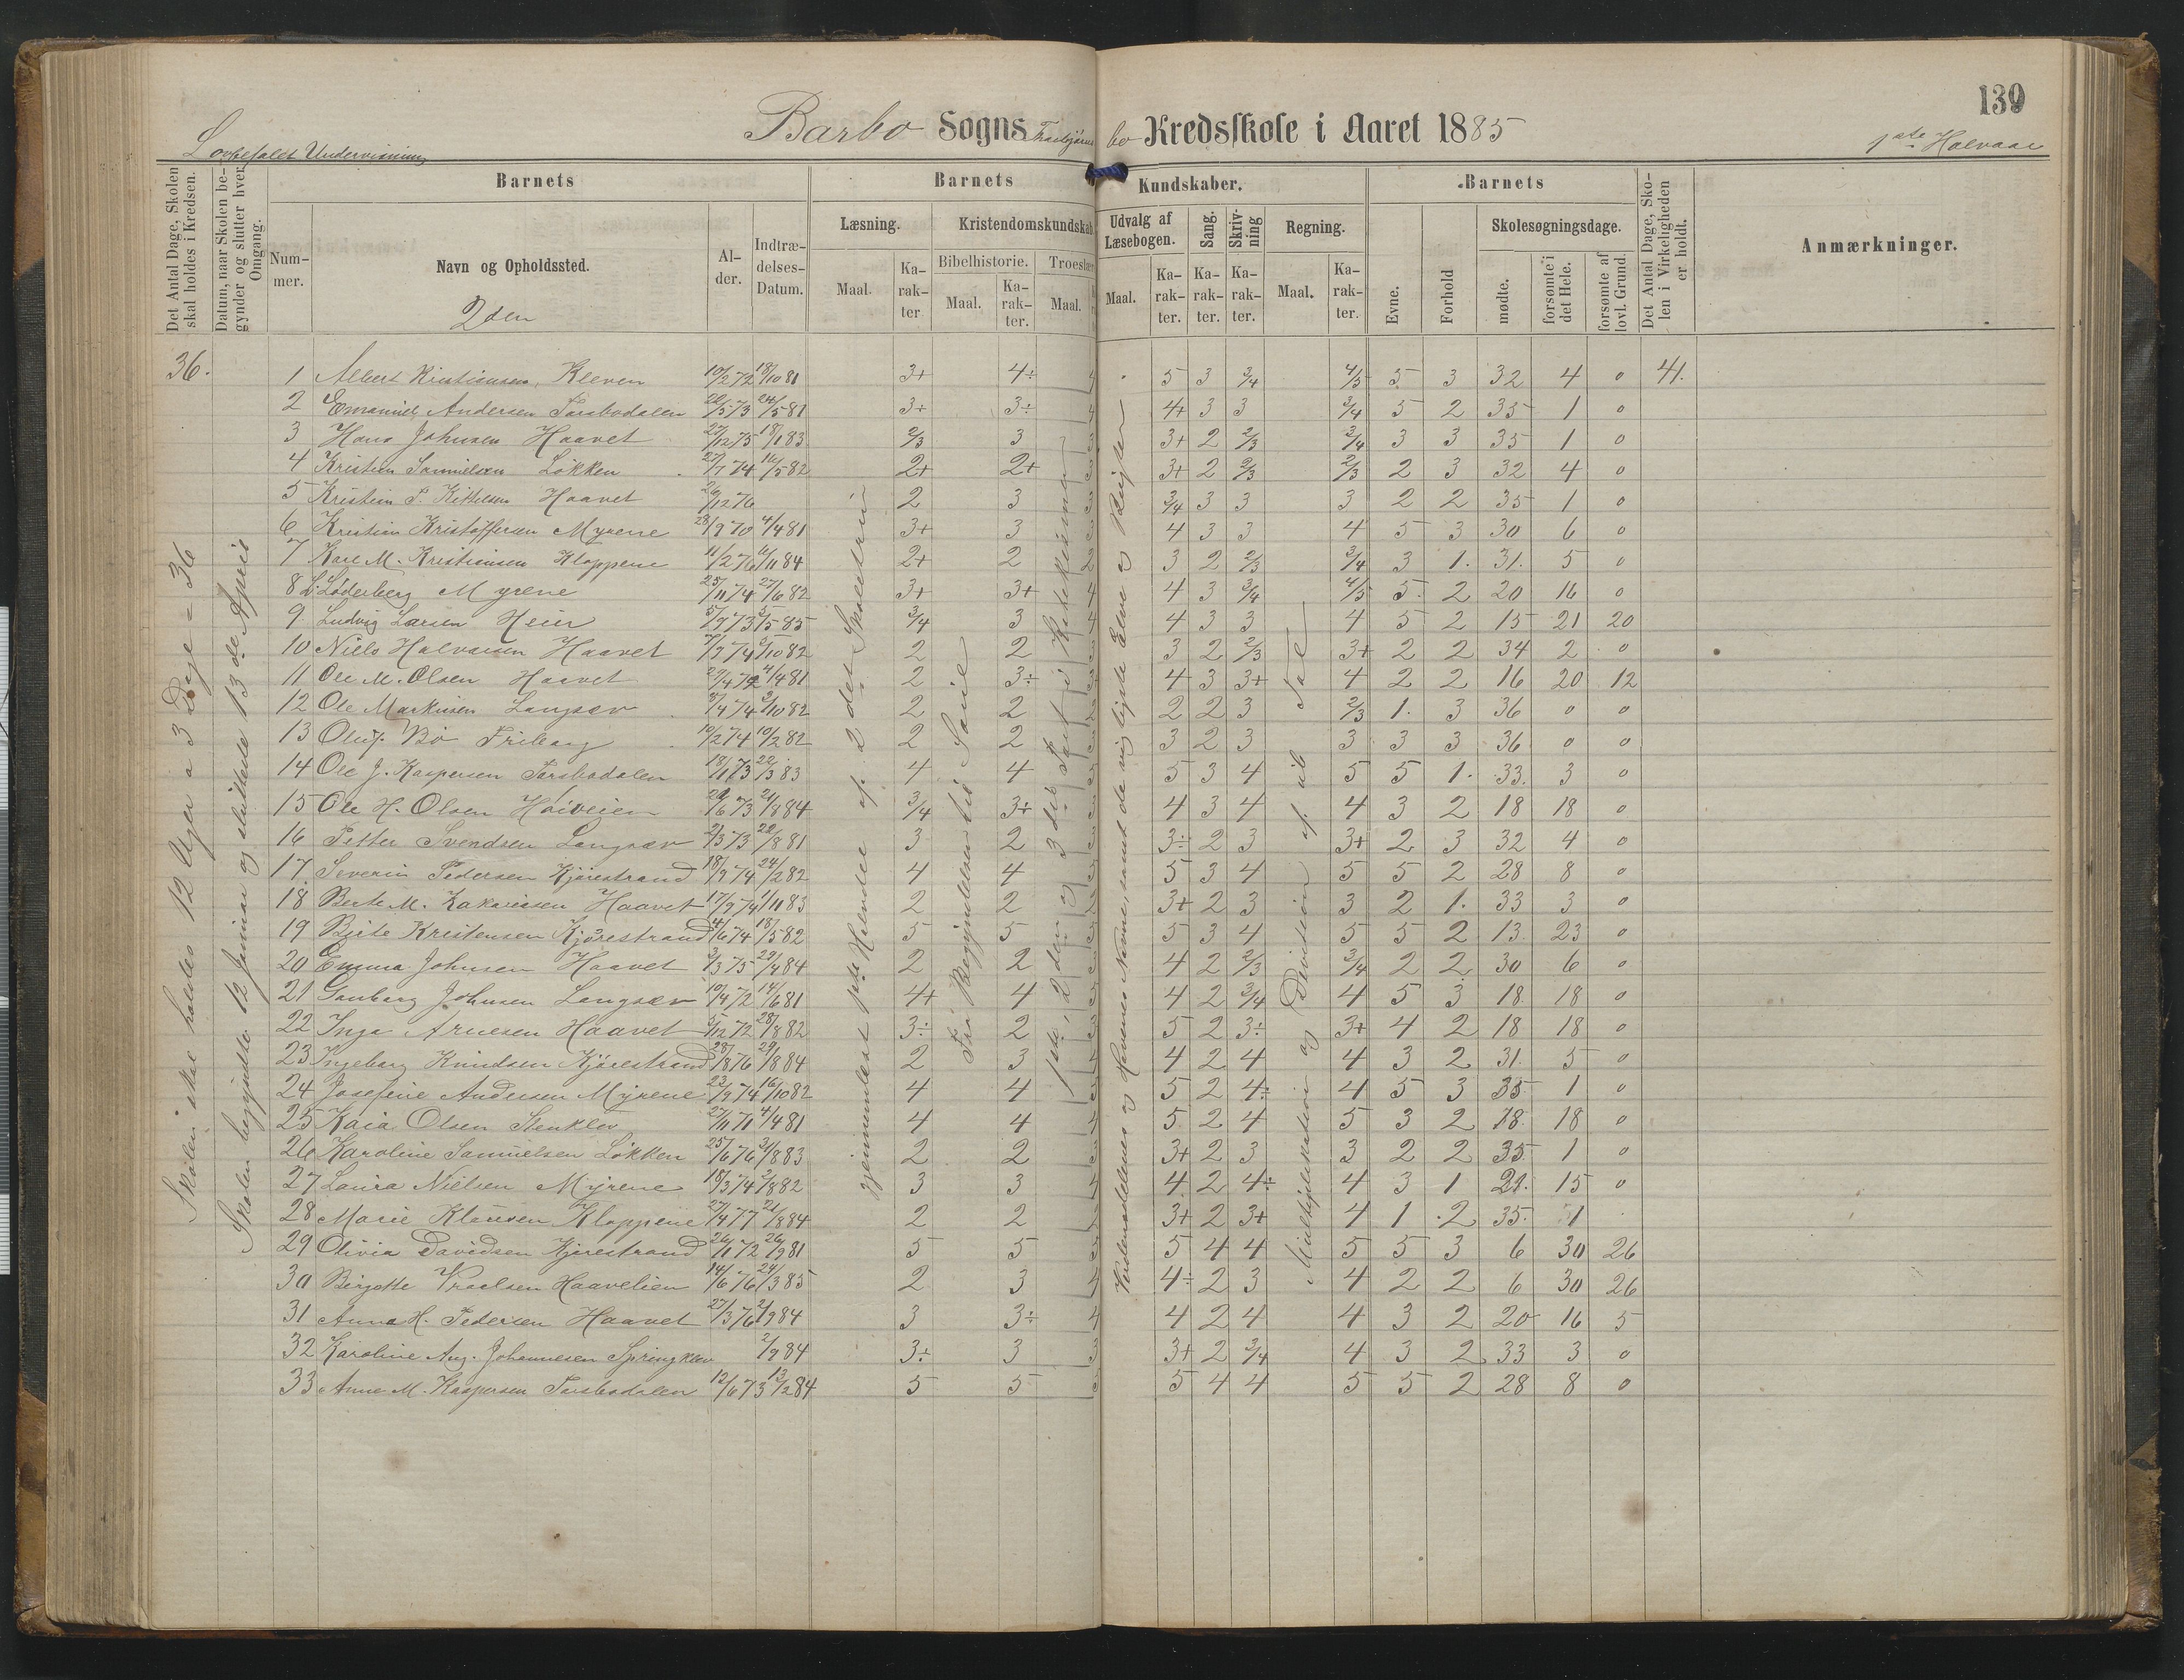 139
Barbo Sogns Kredsskole i Aaret 1885
Lovbefalet Undervisning
1ste Halvaar
Det Antal Dage, Skolen skal holdes i Kredsen.
Datum, naar Skolen begynder og slutter hver Omgang.
Barnets
Barnets
Kundskaber.
Barnets
Det Antal Dage, Skolen i Virkeligheden er holdt.
Anmærkninger.
Nummer.
Navn og Opholdssted.
Alder.
Indtrædelses-Datum.
Læsning.
Kristendomskundskab
Bibelhistorie.
Troeslær
Udvalg af Læsebogen.
Sang.
Skrivning
Regning.
Evne.
Forhold
Skolesøgningsdage.
mødte.
forsømte i det Hele.
forsømte af lovl. Grund.
Maal.
Karakter
Maal.
Karakter.
Maal.
Maal.
Karakter.
Karakter.
Karakter.
Maal.
Karakter.
2den
36.
Skolen skal holdes 12 Uger a 3 Dage = 36
Skolen begyndte 12 Januar og sluttede 13de April
gjennemlæst pst Helendee af 2det Skoletrin
Fra Begyndelsen til Saul
1ste, 2den og 3die Part i Katekismen
Hovedstædernes og Havenes Navne, samt de vigtigste Elve og
Multiplikation og Division af ub Tal
1 Albert Kristiansen, Kleven 10/2 72 18/10 81 3+ 4÷ 4 5 3 3/4 4/5 5 3 32 4 0 41.
2 Emanuel Andersen Torsbudalen 22/5 73 24/5 81 3÷ 3÷ 4 4+ 3 3 3/4 5 2 35 1 0
3 Hans Johnsen Haavet 27/12 75 18/1 83 2/3 3 3 3+ 2 2/3 3/4 3 3 35 1 0
4 Kristian Samuelsen Løkken 27/7 74 16/5 82 2+ 2+ 3 3+ 2 2/3 2/3 2 3 32 4 0
5 Kristian P. Kittelsen Haavet 26/12 76 2 3 3 3/4 3 3 3 2 2 35 1 0
6 Kristian Kristoffersen Myrene 28/9 70 4/4 81 3+ 3 3 4 3 3 4 5 3 30 6 0
7 Karl M. Kristiansen Kloppene 11/2 76 6/11 84 2+ 2 2 3 2 2/3 3/4 3 1. 31. 5 0
8 L. Søderberg Myrene 25/11 74 27/6 82 3+ 3+ 4 4 3 3/4 4/5 5. 2 20 16 0
9 Ludvig Larsen Heier 5/9 73 5/5 85 3/4 3 4 4 3 3 4 5 2 15 21 20
10 Niels Halvorsen Haavet 7/7 74 5/10 82 2 2 3 3 2 2/3 3+ 2 2 34 2 0
11 Ole M. Olsen Haavet 29/4 72 4/4 81 2 3÷ 3 4 3 3+ 4 2 2 16 20 12
12 Ole Markusen Langsæv 8/4 74 2/10 82 2 2 2 2 2 3 2/3 1. 3 36 0 0
13 Oluf Bø Friberg 10/2 74 10/2 82 2 2 3 3 2 3 3 3 3 36 0 0
14 Ole J. Kaspersen Torsbudalen 18/11 73 22/3 83 4 4 3 5 3 4 5 5 1. 33. 3 0
15 Ole H. Olsen Høiveien 22/6 73 21/8 84 3/4 3+ 3 4 3 4 4 3 2 18 18 0
16 Petter Svendsen Langsæv 2/3 73 22/8 81 3 2 3 3÷ 2 3 3+ 2 3 32 4 0
17. Severin Pedersen Kjørestrand 18/9 74 24/2 82 4 4 3 5 3 4 5 5 2 28 8 0
18. Berte M. Zakariasen Haavet 17/9 74 1/11 83 2 2 3+ 2 3 3 2 1. 33 3 0
19 Beate Kristensen Kjørestrand 4/6 74 18/5 82 5 5 5 3 4 5 5 2 13 23 0
20 Emma Johnsen Haavet 2/3 75 29/4 84 2 2 4 2 2/3 3/4 2 2 30 6 0
21 Gunborg Johnsen Langsæv 10/4 72 14/6 81 4+ 4 4 2 3/4 4 5 3 18 18 0
22 Inga Arnesen Haavet 5/12 72 28/8 82 3÷ 2 5 2 3÷ 3+ 4 2 18 18 0
23 Ingeborg Knudsen Kjørestrand 28/8 76 29/8 84 2 3 4 2 4 4 3 2 31. 5 0
24 Josefine Andersen Myrene 23/9 74 16/10 82 4 4 5 2 4÷ 4 5 3 35 1 0
25 Kaia Olsen Stenklev 27/11 71 4/4 81 4 4 5 2 4 5 3 2 18. 18 0
26 Karoline Samuelsen Løkken 25/6 76 31/8 83 2 2 3 3+ 2 3 3 2 2 35. 1 0
27 Laura Nielsen Myrene 18/3 74 2/8 82 3 3 4 4 2 4÷ 4 3 1 21. 15 0
28 Marie Klausen Kloppene 27/4 77 21/8 84 2 2 2 3+ 2 3+ 4 1 2 35. 1
29 Olivia Davidsen Kjørestrand 26/11 72 26/9 81 5 5 5 4 4 5 5 3 6 30 26
30 Bergitte Vraalsen Haavelien 14/6 76 24/3 85 2 3 4 4÷ 2 3 4 2 2 6 30 26
31 Anna H. Pedersen Haavet 27/3 76 2/9 84 3 3÷ 4 4 2 4 4 3 2 20 16 5
32 Karoline Aug. Johannesen Springklev 2/9 84 3÷ 3 3 3+ 2 3/4 4 3 2 33 3 0
33 Anne M. Kaspersen Torsbudalen 12/6 73 13/2 84 5 5 5 5 4 4 5 5 2 28 8 0